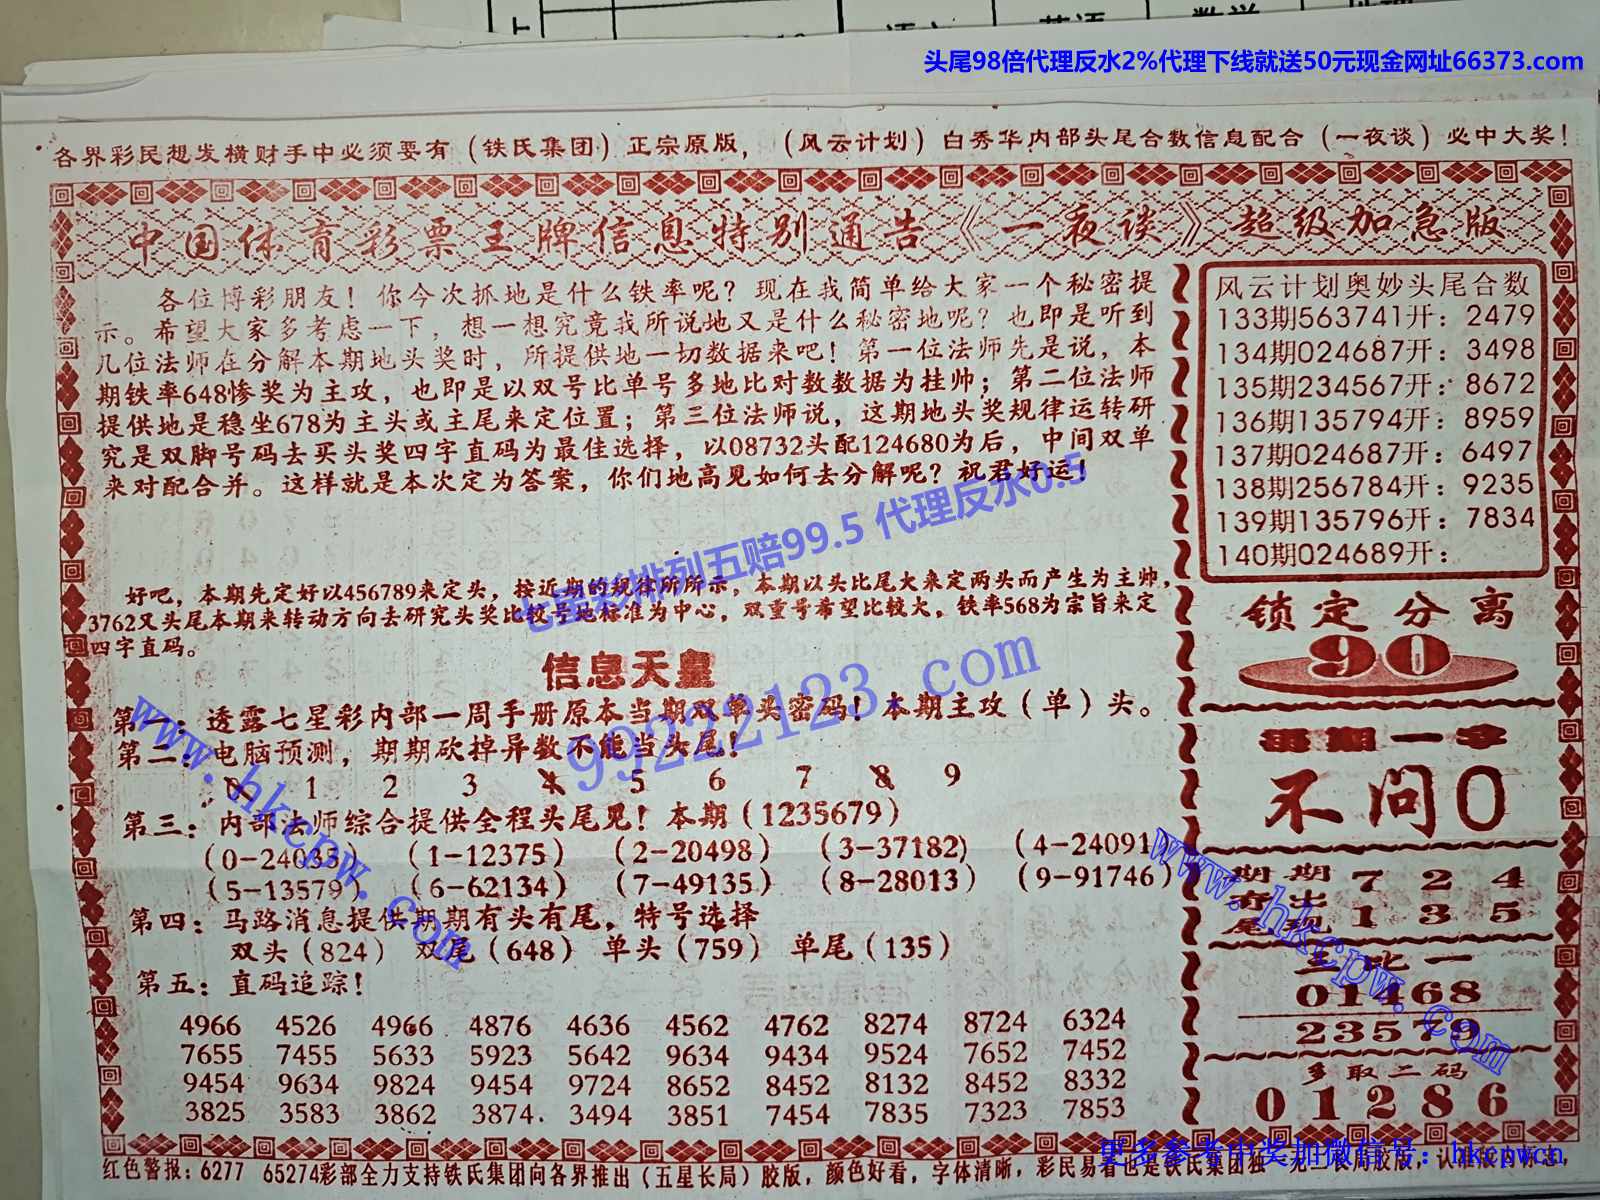 头尾98倍代理反水2%代理下线就送50元现金网址66373.com
各界彩民想发横财手中必须要有（铁氏集团）正宗原版，（风云计划）白秀华内部头尾合数信息配合（一夜谈）必中大奖！
中国体育彩票王牌信息特别通告《一夜谈》超级加急版
各位博彩朋友！你今次抓地是什么铁率呢？现在我简单给大家一个秘密提
示。希望大家多考虑一下，想一想究竟我所说地又是什么秘密地呢？也即是听到
几位法师在分解本期地头奖时，所提供地一切数据来吧！第一位法师先是说，本
期铁率648惨奖为主攻，也即是以双号比单号多地比对数数据为挂帅；第二位法师
提供地是稳坐678为主头或主尾来定位置；第三位法师说，这期地头奖规律运转研
究是双脚号码去买头奖四字直码为最佳选择，以08732头配124680为后，中间双单
来对配合并。这样就是本次定为答案，你们地高见如何去分解呢？祝君好运！
七星彩排列五赔99.5 代理反水0.5
好吧，本期先定好以456789来定头，按近期的规律所所示，本期以头比尾大来定两头而产生为主帅，
3762又头尾本期来转动方向去研究头奖比较号地标准为中心，双重号希望比较大，铁率568为宗旨来定
四字直码。
信息天皇
99222123.com
第一：透露七星彩内部一周手册原本当期双单头密码！本期主攻（单）头。
第二：电脑预测，期期砍掉异数不能当头尾！
0 1 2 3 4 5 6 7 8 9
第三：内部法师综合提供全程头尾见！本期（1235679）
（0-24035）（1-12375）（2-20498）（3-37182）（4-24091）
（5-13579）（6-62134）（7-49135）（8-28013）（9-91746）
第四：马路消息提供期期有头有尾，特号选择
双头（824） 双尾（648） 单头（759） 单尾（135）
第五：直码追踪！
4966 4526 4966 4876 4636 4562 4762 8274 8724 6324
7655 7455 5633 5923 5642 9634 9434 9524 7652 7452
9454 9634 9824 9454 9724 8652 8452 8132 8452 8332
3825 3583 3862 3874. 3494 3851 7454 7835 7323 7853
www.hkcpw.com
风云计划奥妙头尾合数
133期563741开：2479
134期024687开：3498
135期234567开：8672
136期135794开：8959
137期024687开：6497
138期256784开：9235
139期135796开：7834
140期024689开：
锁定分离
90
每期一字
不问0
期期 7 2 4
奇出
尾现 1 3 5
www.hkcpw.com
比一
01468
23579
多取二码
01286
更多参考中奖加微信号：hkcpwcn
红色警报：6277 65274彩部全力支持铁氏集团向各界推出（五星长局）胶版，颜色好看，字体清晰，彩民易看也是铁氏集团独一无二长局胶版，认准版内标志，